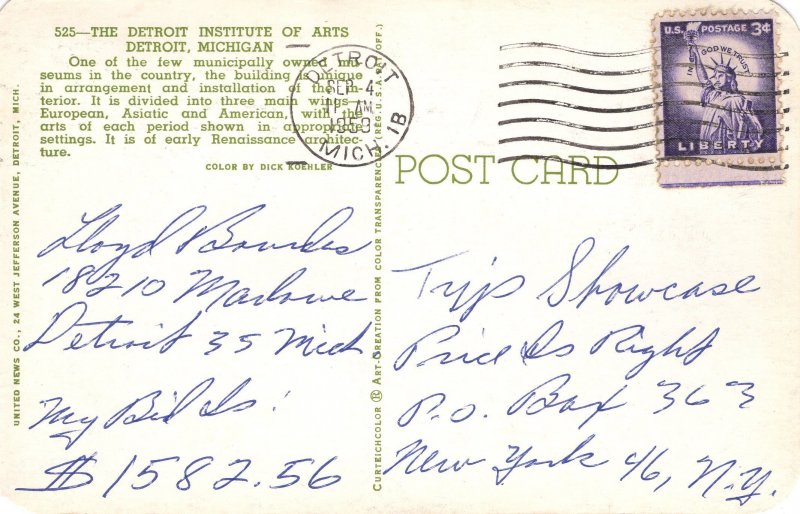 525—THE DETROIT INSTITUTE OF ARTS
DETROIT, MICHIGAN
One of the few municipally owned mu-
seums in the country, the building is unique
in arrangement and installation of the in-
terior. It is divided into three main wings—
European, Asiatic and American, with the
arts of each period shown in appropriate
settings. It is of early Renaissance architec-
ture.
COLOR BY DICK KOEHLER
UNITED NEWS CO., 24 WEST JEFFERSON AVENUE, DETROIT, MICH.
Lloyd
18210 Marlowe
Detroit 35 Mich
My Bid Is:
$1582.56
CURTEICHCOLOR ® ART-CREATION FROM COLOR TRANSPARENCY (REG. U.S.A. PAT. OFF.)
DETROIT
SEP 4
AM
1959
MICH. 1B
U.S. POSTAGE 3¢
IN GOD WE TRUST
LIBERTY
POST CARD
Trip Showcase
Price Is Right
P.O. Box 363
New York 46, N.Y.